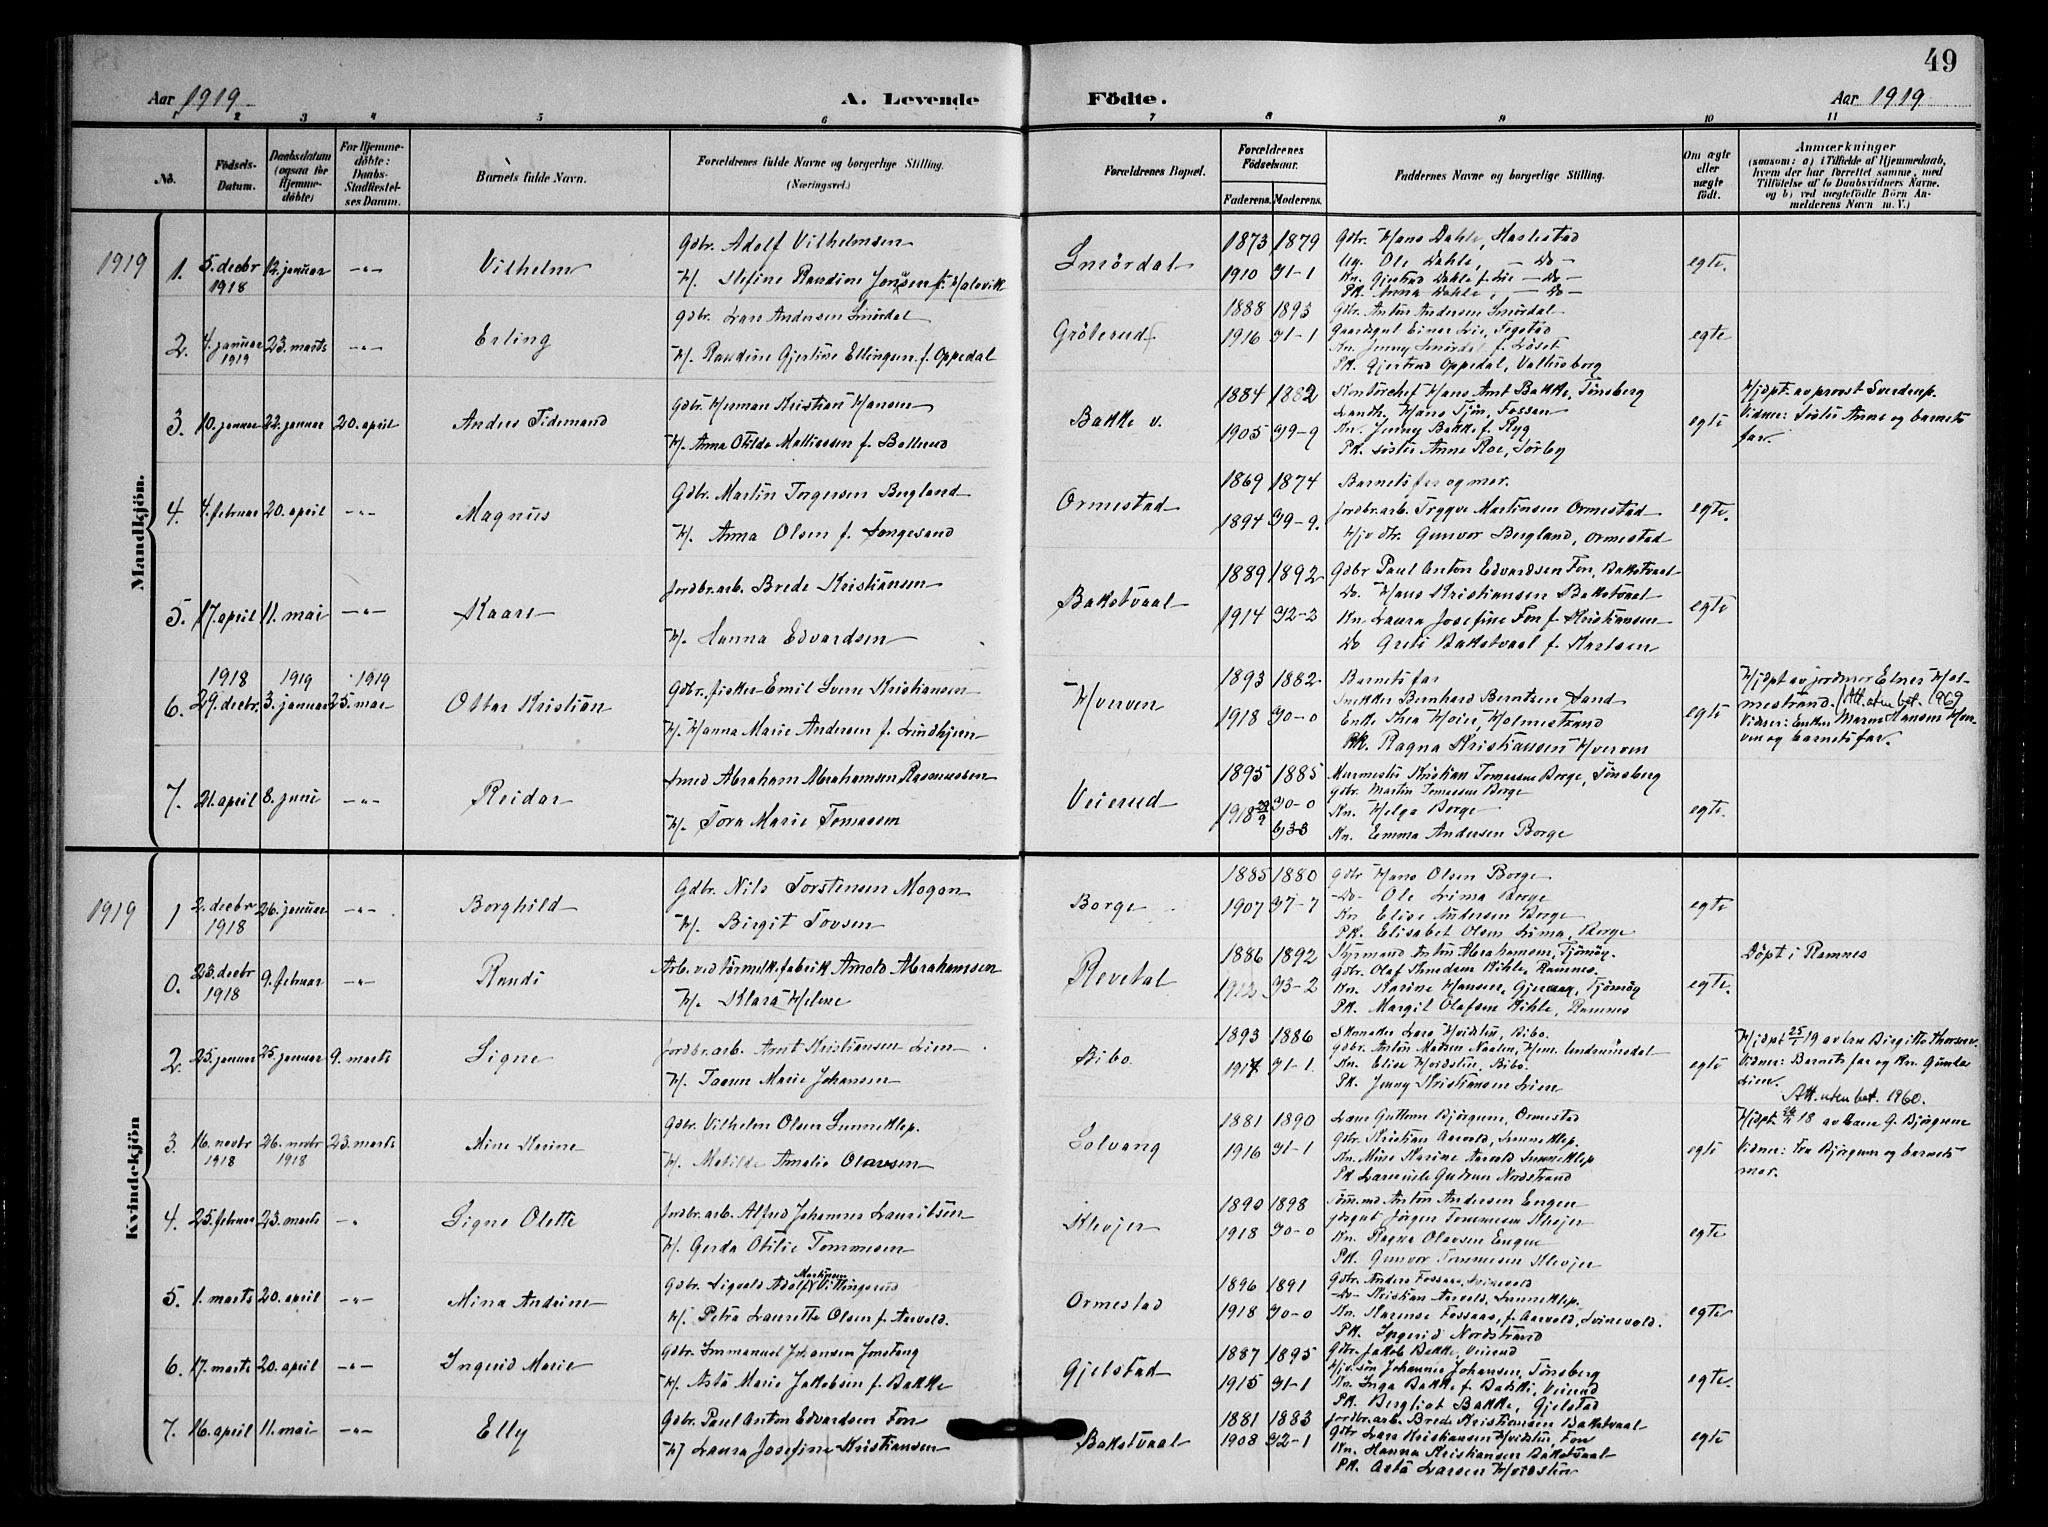 49
Aar 1919
A. Levende
Födte.
Aar 1919
1 2 3 4 5 6 7 8 9 10 11
No.
Födsels-Datum.
Daabsdatum (ogsaa for Hjemmedöbte)
For Hjemmedöbte: Daabs-Stadfæstelses Datum.
Barnets fulde Navn.
Forældrenes fulde Navne og borgerlige Stilling. (Næringsvei.)
Forældrenes Bopæl.
Forældrenes Födselsaar.
Faderens. Moderens.
Faddernes Navne og borgerlige Stilling.
Om ægte eller uægte födt.
Anmærkninger
(saasom: a) i Tilfælde af Hjemmedaab, hvem der har forrettet samme, med Tilföielse af to Daabsvidners Navne. og b) ved uægtefödte Börn Anmelderens Navn m. V.)
Mandkjön.
1919
1. 5. decbr 1918 12. januar -"- Vilhelm
Gdbr. Adolf Vilhelmsen
H. Stefine Randine Jonsen f. Holsvik
Smördal
1873 1879
1910 G1-1
Gdbr. Hans Dahle, Haslestad
Ug. Ole Dahle, -Do-
Kn. Gjertrud Dahle f. Lie -Do-
PK. Anna Dahle, -Do-
egte.
2. 4. januar 1919 23. marts -"- Erling
Gdbr. Lars Andersen Smördal
H. Randine Gjertine Ellingsen f. Oppedal
Gröterud
1888 1893
1916 G1-1
Gdbr. Anton Andersen Smördal
Gaardsgut Einar Lie, Tegstad
Kn. Jenny Smördal f. Löset
PK. Gjertrud Oppedal, Vallensborg
egte
3. 10. januar 22. januar 20. april Anders Tidemand
Gdbr. Herman Kristian Hansen
H. Anna Otilde Mathiassen f. Bollerud
Bakke v.
1884 1882
1905 G9-9
Kontorchef Hans Arnt Bakke, Tönsberg
Landh. Hans Tjön, Fossan
Kn. Jenny Bakke f. Ryg
PK. söster Anne Roe, Sörby
egte
Hjdpt. av provst Sverdrup.
Vidner: Söster Anne og barnets
far.
4. 4. februar 20. april -"- Magnus
Gdbr. Martin Torgersen Bergland
H. Anna Olsen f. Langesand
Ormestad
1869 1874
1894 G9-9.
Barnets far og mor.
Jordbr.arb. Trygve Martinsen Ormestad
Hjv. dtr. Gunvor Bergland, Ormestad
egte.
5. 17. april 11. mai -"- Kaare
Jordbr.arb. Brede Kristiansen
H. Hanna Edvardsen
Bakstvaal
1889 1892
1914 G2-3
Gdbr Paul Anton Edvardsen Fon, Bakstvaal
Do. Hans Kristiansen Bakstvaal
Kn. Laura Josefine Fon f. Kristiansen
Do Grete Bakstvaal f. Karlsen
egte
1918 1919 1919
6. 29. decbr. 3. januar 25. mai Ottar Kristian
Gdbr. fisker Emil Sven Kristiansen
H. Hanna Marie Andersen f. Lindhjem
Hverven
1893 1882
1918 G0-0
Barnets far
Snekker Bernhard Berntsen Sand
Enke Thea Hoier, Holmestrand
PK. Ragna Kristiansen Hverven
egte
Hjdpt av jordmor Elnes Holmestrand. Att. uten bet. 1969
Vidner: Enken Maren Hansen Hverven og barnets far.
7. 21. april 8. juni -"- Reidar
Smed Abraham Abrahamsen Rasmussen
H. Tora Marie Tomassen
Veierud
1895 1885
1918 29/9 G0-0
G3-3
Murmester Kristian Tomassen Borge, Tönsberg
gdbr. Martin Tomassen Borge
Kn. Helga Borge
Kn. Emma Andersen Borge
egte.
Kvindekjön
1919
1 2. decbr 1918 26. januar -"- Borghild
Gdbr. Nils Torstensen Mogan
H. Birgit Tovsen
Borge
1885 1880
1907 G7-7
Gdbr Hans Olsen Borge
-Do- Ole Lima Borge
Kn Elise Andersen Borge
PK. Elisabet Olsen Lima, Borge
egte
0. 23. decbr 1918 9. februar -"- Randi
Arb. ved törmelk.fabrik Arnold Abrahamsen
H. Klara Helene
Revetal
1886 1892
1912 G3-2
Styrmand Anton Abrahamsen, Tjömöy.
Gdbr. Olaf Knudsen Kihle, Ramnes.
Kn. Karine Hansen, Tjömöy
PK. Margit Olafsen Kihle, Ramnes
egte.
Döpt i Ramnes
2. 25. januar 25. januar 9. marts Signe
Jordbr.arb. Arnt Kristiansen Lien
H. Toran Marie Johansen
Bibo
1893 1886
1917 G1-1
Skomaker Lars Hvidsten, Bibo.
gdbr. Anton Madsen
Kn. Elise Hvidsten, Bibo.
PK. Jenny Kristiansen Lien
egte
Hjdpt 25/1 19 av fru Birgitte Thorsen.
Vidner: Barnets far og Kn. Gunda
Lien.
Att. uten bet. 1960.
3. 16. novbr 1918 26. novbr 1918 23. marts Mine Karine
Gdbr. Vilhelm Olsen Sunneklep.
H. Matilde Amalie Olavesen
Solvang
1881 1890
1916 G1-1
Lars Guttorm Björgum, Ormestad
Gdbr. Kristian Aarvold, Sunneklep.
Kn. Mine Karine Aarvold Sunneklep
PK. Gudrun Nordstrand
egte
Hjdpt 26/11 18 av Lars G. Björgum
Vidner: Fru Björgum og barnets
mor.
4. 25. februar 23. marts -" Signe Olette
Jordbr.arb. Alfred Johannes Lauritsen
H. Gerda Otilie Tommesen
Klevjer
1890 1898
1918 G0-0
Töm.md. Anton Andersen Engen
Jörgen Tommesen Klevjer
Kn. Ragna Olavsen Engen
PK. Gunvor Tommesen Klevjer
egte
5. 1. marts 20. april -"- Mina Andrine
Gdbr. Sigvald Adolf Martinsen Vittingsrud
H. Petra Laurette Olsen f. Aarvold.
Ormestad
1896 1891
1918 G0-0
Gdbr. Anders Fossaas, Svinevold
-Do- Kristian Aarvold, Sunneklep.
Kn. Karense Fossaas, f. Aarvold, Svinevold.
PK. Ingerid Nordstrand
egte
6. 17. marts 20. april -"- Ingerid Marie
Gdbr. Immanuel Johansen Jonstang
H. Asta Marie Jakobsen f. Bakke
Gjelstad
1887 1895
1915 G1-1
Gdbr. Jakob Bakke, Veierud
Hjv. sön Johannes Johansen, Tönsberg
Kn. Inga Bakke f. Bakke, Veierud
PK. Bergliot Bakke, Gjelstad
egte.
7. 16. april 11. mai -"- Elly
Gdbr. Paul Anton Edvardsen Fon
H Laura Josefine Kristiansen
Bakstvaal
1881 1883
1908 G2-1
Jordbr.arb. Brede Kristiansen Bakstvaal
Gdbr Lars Kristiansen Hvidsten, Fon
Kn. Hanna Kristiansen Bakstvaal
PK. Asta Larsen Hvidsten
egte